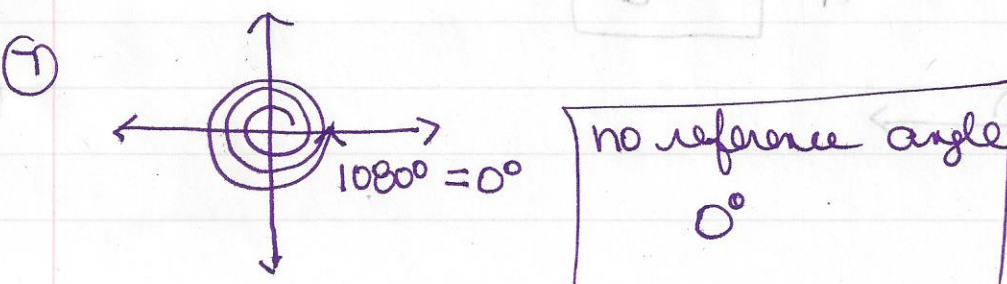 7
1080° = 0°
no reference angle
0°